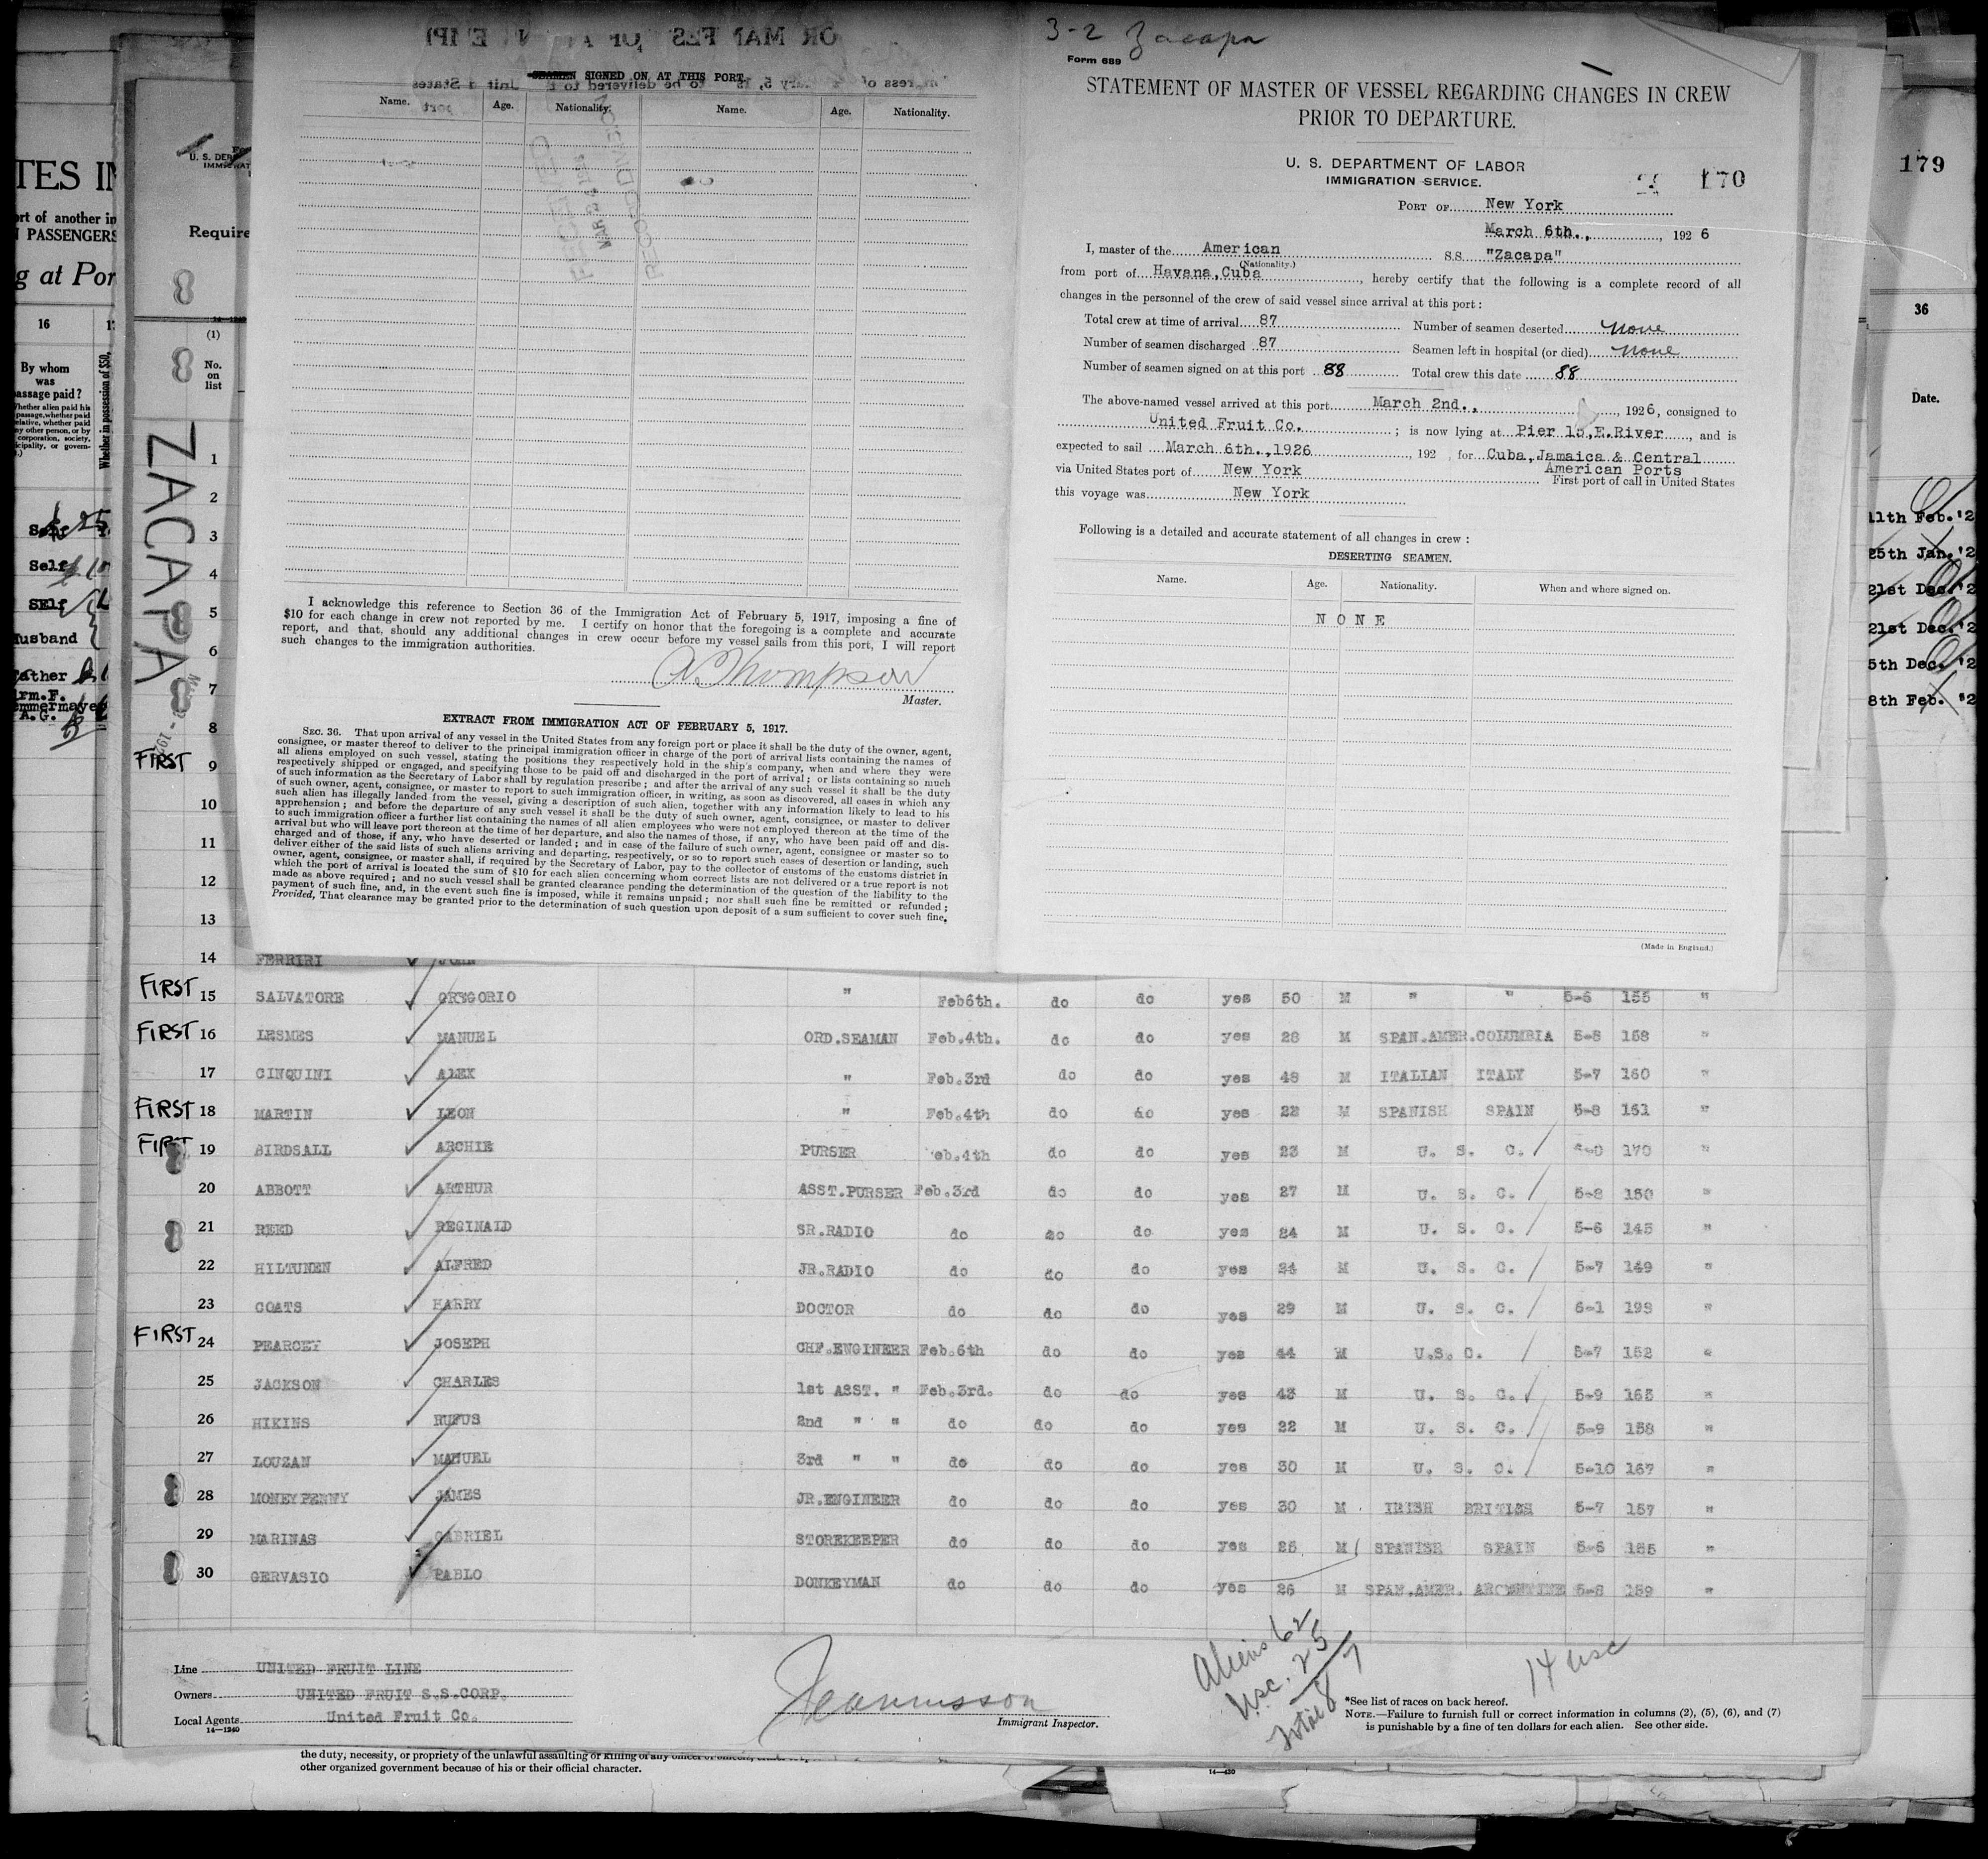 SEAMEN SIGNED ON AT THIS PORT.
Name. Age. Nationality. Name. Age. Nationality.
I acknowledge this reference to Section 36 of the Immigration Act of February 5, 1917, imposing a fine of
$10 for each change in crew not reported by me. I certify on honor that the foregoing is a complete and accurate
report, and that, should any additional changes in crew occur before my vessel sails from this port, I will report
such changes to the immigration authorities.
A. Thompson
Master.
EXTRACT FROM IMMIGRATION ACT OF FEBRUARY 5, 1917.
SEC. 36. That upon arrival of any vessel in the United States from any foreign port or place it shall be the duty of the owner, agent,
consignee, or master thereof to deliver to the principal immigration officer in charge of the port of arrival lists containing the names of
all aliens employed on such vessel, stating the positions they respectively hold in the ship's company, when and where they were
respectively shipped or engaged, and specifying those to be paid off and discharged in the port of arrival; or lists containing so much
of such information as the Secretary of Labor shall by regulation prescribe; and after the arrival of any such vessel it shall be the duty
of such owner, agent, consignee, or master to report to such immigration officer, in writing, as soon as discovered, all cases in which any
such alien has illegally landed from the vessel, giving a description of such alien, together with any information likely to lead to his
apprehension; and before the departure of any such vessel it shall be the duty of such owner, agent, consignee, or master to deliver
to such immigration officer a further list containing the names of all alien employees who were not employed thereon at the time of the
arrival but who will leave port thereon at the time of her departure, and also the names of those, if any, who have been paid off and dis-
charged and of those, if any, who have deserted or landed; and in case of the failure of such owner, agent, consignee or master so to
deliver either of the said lists of such aliens arriving and departing, respectively, or so to report such cases of desertion or landing, such
owner, agent, consignee, or master shall, if required by the Secretary of Labor, pay to the collector of customs of the customs district in
which the port of arrival is located the sum of $10 for each alien concerning whom correct lists are not delivered or a true report is not
made as above required; and no such vessel shall be granted clearance pending the determination of the question of the liability to the
payment of such fine, and, in the event such fine is imposed, while it remains unpaid; nor shall such fine be remitted or refunded;
Provided, That clearance may be granted prior to the determination of such question upon deposit of a sum sufficient to cover such fine.
3-2 Zacapa
Form 689
STATEMENT OF MASTER OF VESSEL REGARDING CHANGES IN CREW
PRIOR TO DEPARTURE.
U. S. DEPARTMENT OF LABOR
IMMIGRATION SERVICE.
170
PORT OF New York
March 6th., , 192 6
I, master of the American S.S. "Zacapa"
(Nationality.)
from port of Havana,Cuba , hereby certify that the following is a complete record of all
changes in the personnel of the crew of said vessel since arrival at this port:
Total crew at time of arrival 87 Number of seamen deserted none
Number of seamen discharged 87 Seamen left in hospital (or died) none
Number of seamen signed on at this port 88 Total crew this date 88
The above-named vessel arrived at this port March 2nd., , 1926, consigned to
United Fruit Co. ; is now lying at Pier 15,E.River , and is
expected to sail March 6th.,1926 , 192 , for Cuba,Jamaica & Central
American Ports
via United States port of New York First port of call in United States
this voyage was New York
Following is a detailed and accurate statement of all changes in crew:
DESERTING SEAMEN.
Name. Age. Nationality. When and where signed on.
N O N E
(Made in England.)
TES IN
ort of another in
N PASSENGERS
g at Por
16
By whom
was
passage paid?
Whether in possession of $50,
Self
Self
SElf
Husband
Father
A.G.
179
36
Date.
11th Feb.'2
25th Jan.'2
21st Dec.'2
21st Dec.'2
5th Dec.'2
8th Feb.'2
U. S. DEP
IMMIGRAT
Require
(1)
No.
on
list
ZACAPA
1
2
3
4
5
6
7
8
FIRST 9
10
11
12
13
14 FERRIRI JOHN
FIRST 15 SALVATORE GREGORIO " Feb6th. do do yes 50 M " " 5-6 155 "
FIRST 16 LESMES MANUEL ORD.SEAMAN Feb.4th. do do yes 28 M SPAN.AMER.COLUMBIA 5-8 158 "
17 CINQUINI ALEX " Feb.3rd do do yes 48 M ITALIAN ITALY 5-7 160 "
FIRST 18 MARTIN LEON " Feb.4th do do yes 22 M SPANISH SPAIN 5-8 151 "
FIRST 19 BIRDSALL ARCHIE PURSER Feb.4th do do yes 23 M U. S. C. 170 "
20 ABBOTT ARTHUR ASST.PURSER Feb.3rd do do yes 27 M U. S. C. 5-8 150 "
21 REED REGINALD SR.RADIO do do do yes 24 M U. S. C. 5-6 145 "
22 HILTUNEN ALFRED JR.RADIO do do do yes 24 M U. S. C. 5-7 149 "
23 COATS HARRY DOCTOR do do do yes 29 M U. S. C. 6-1 199 "
FIRST 24 PEARCEY JOSEPH CHF.ENGINEER Feb.6th do do yes 44 M U.S.C. 5-7 152 "
25 JACKSON CHARLES 1st ASST. " Feb.3rd. do do yes 43 M U. S. C. 5-9 165 "
26 HIKINS RUFUS 2nd " " do do do yes 22 M U. S. C. 5-9 158 "
27 LOUZAN MANUEL 3rd " " do do do yes 30 M U. S. C. 5-10 167 "
28 MONEYPENNY JAMES JR.ENGINEER do do do yes 30 M IRISH BRITISH 5-7 157 "
29 MARINAS GABRIEL STOREKEEPER do do do yes 25 M SPANISH SPAIN 5-6 155 "
30 GERVASIO PABLO DONKEYMAN do do do yes 26 M SPAN.AMER. ARGENTINE 5-8 159 "
Line UNITED FRUIT LINE
Owners UNITED FRUIT S.S.CORP.
Local Agents United Fruit Co.
14—1240
Immigrant Inspector.
Aliens 62
U.S.C. 25
Total 87
14 USC
*See list of races on back hereof.
NOTE.—Failure to furnish full or correct information in columns (2), (5), (6), and (7)
is punishable by a fine of ten dollars for each alien. See other side.
the duty, necessity, or propriety of the unlawful assaulting or killing of any officer
other organized government because of his or their official character.
14—430